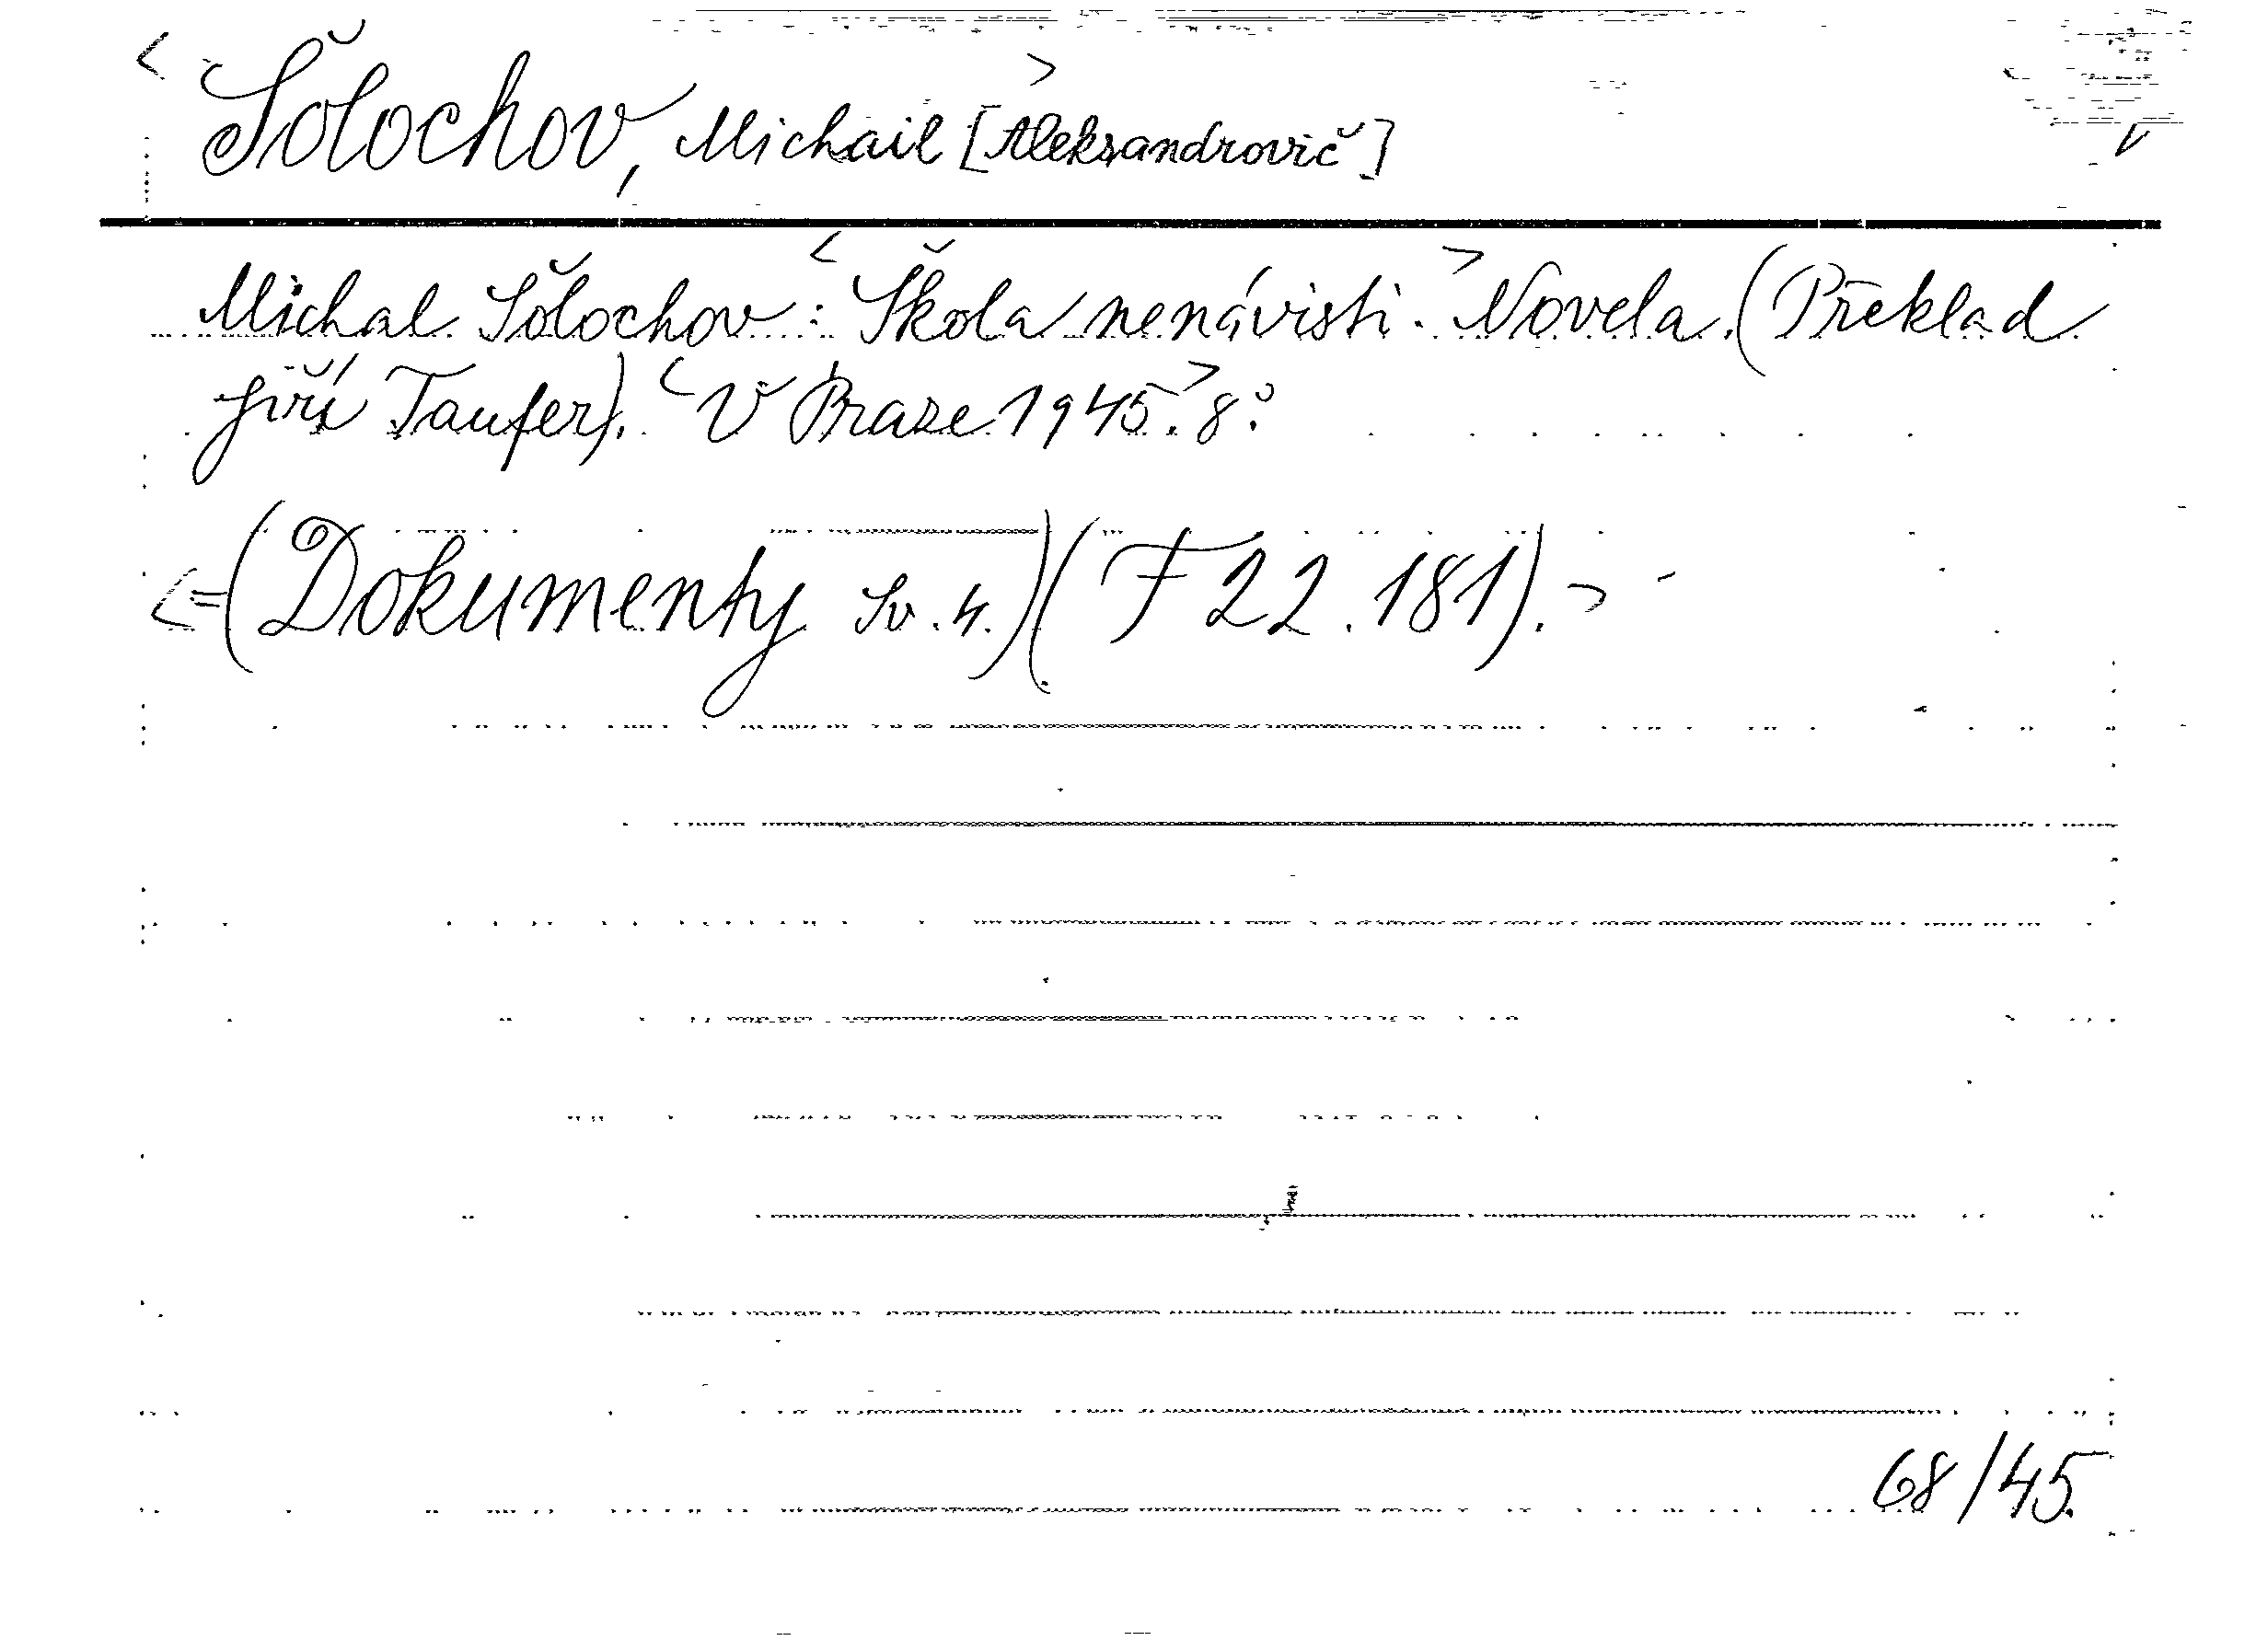 <Šolochov,> Michail [Aleksandrovič]
Michal Šolochov: <Škola nenávisti.> Novela. (Překlad
Jiří Taufer). <V Praze 1945.> 8°.
<=(Dokumenty Sv. 4.) (F 22.181).>
68/45.